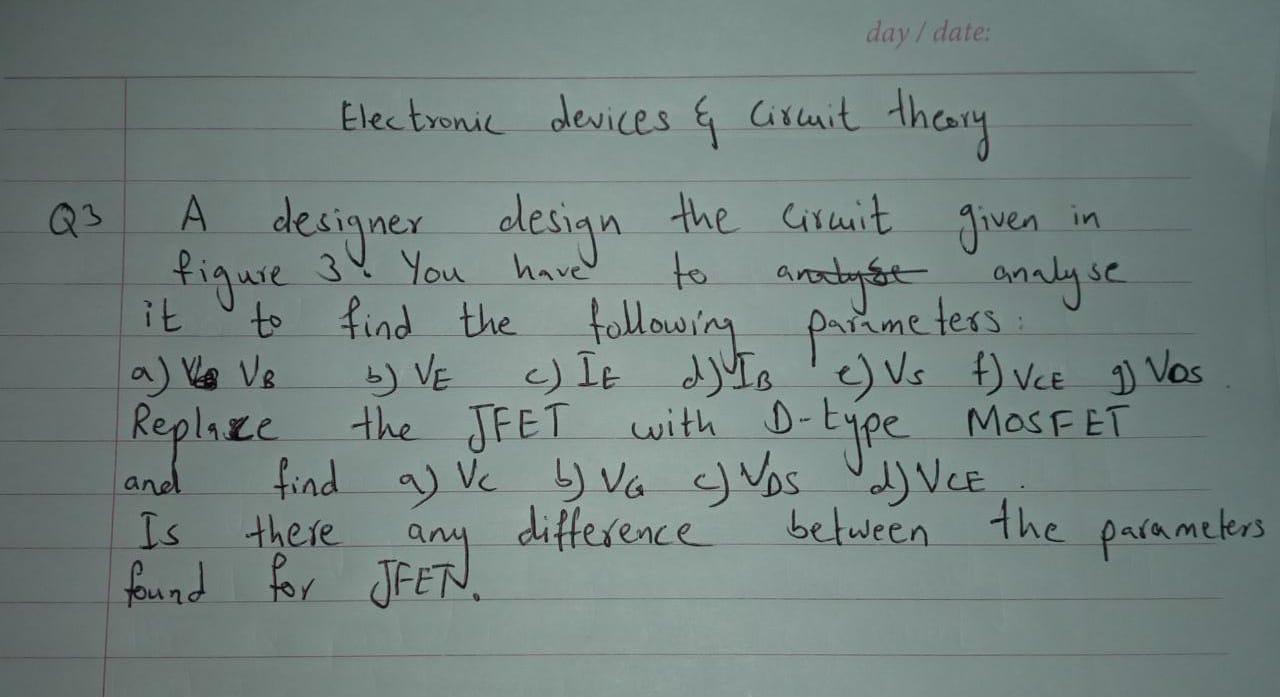 day / date:
Electronic devices & Circuit theory
Q3 A designer design the circuit given in
figure 3. You have to analyse analyse
it to find the following parameters:
a) VB b) VE c) IE d) IB e) VS f) VCE g) VDS.
Replace the JFET with D-type MOSFET
and find a) VC b) VG c) VDS d) VCE.
Is there any difference between the parameters
found for JFET.